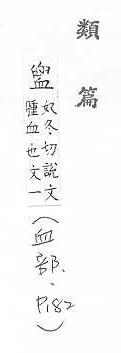 類篇
奴冬切說文
腫血也文一
(血部、P.182)